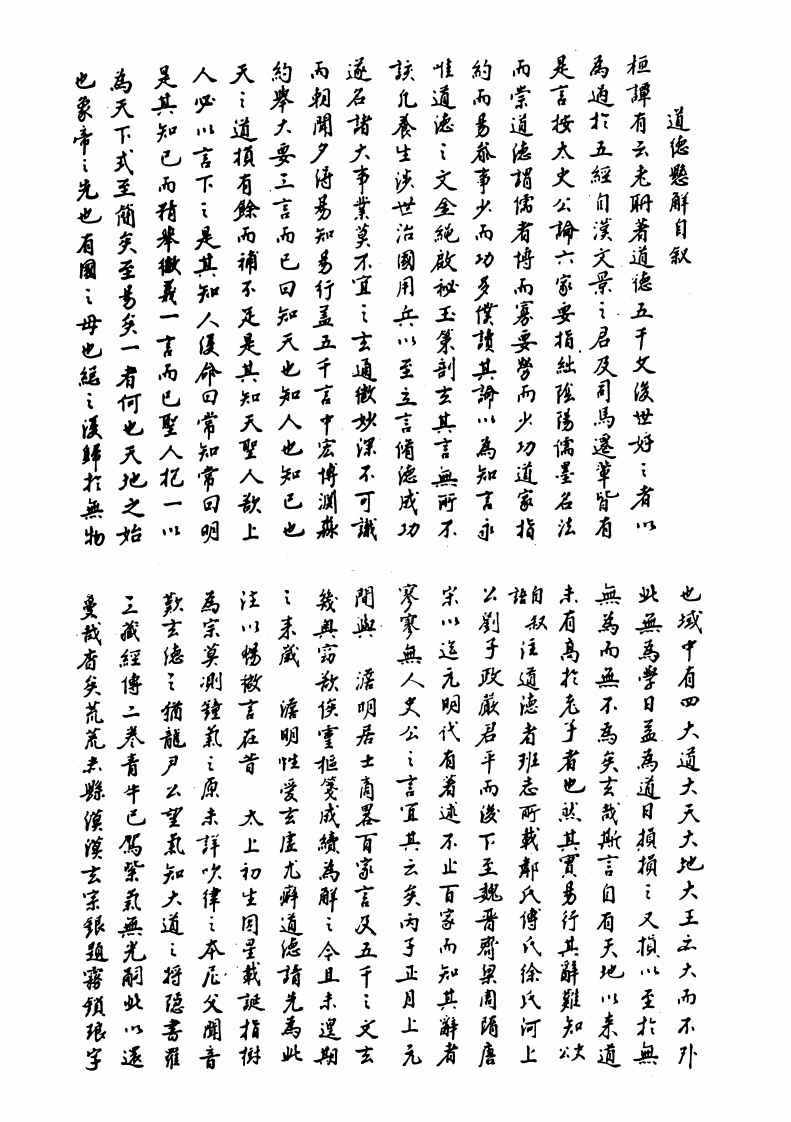 道德懸解自叙
桓譚有云老聃著道德五千文後世好之者以
為過於五經自漢文景之君及司馬遷輩皆有
是言按太史公論六家要指絀陰陽儒墨名法
而崇道德謂儒者博而寡要勞而少功道家指
約而易操事少而功多僕讀其論以為知言永
惟道德之文金繩啟秘玉策剖玄其言無所不
該凡養生涉世治國用兵以至立言脩德成功
遂名諸大事業莫不宜之玄通微妙深不可識
而朝聞夕得易知易行蓋五千言中宏博淵淼
約舉大要三言而已曰知天也知人也知己也
天之道損有餘而補不足是其知天聖人欲上
人必以言下之是其知人復命曰常知常曰明
是其知己而精舉微義一言而已聖人抱一以
為天下式至簡矣至易矣一者何也天地之始
也象帝之先也有國之母也繩之復歸於無物
也域中有四大道大天大地大王亦大而不外
此無為學日益為道日損損之又損以至於無
無為而無不為矣玄哉斯言自有天地以來道
未有高於老子者也然其實易行其辭難知太史公
自叙語注道德者班志所載鄰氏傅氏徐氏河上
公劉子政嚴君平而後下至魏晉齊梁周隋唐
宋以迄元明代有著述不止百家而知其辭者
寥寥無人史公之言宜其云矣丙子正月上元
間與 澹明居士商略百家言及五千之文玄
幾與窈欲俟靈樞箋成續為解之今且未遑期
之來歲 澹明性愛玄虛尤癖道德請先為此
注以暢微言在昔 太上初生因星載誕指樹
為宗莫測鐘氣之原未詳吹律之本尼父聞音
歎玄德之猶龍尹公望氣知大道之將隱書雖
三藏經傳二卷青牛已駕紫氣無光嗣此以還
敻哉杳矣荒荒赤縣漠漠玄宗銀題霧鎖琅字